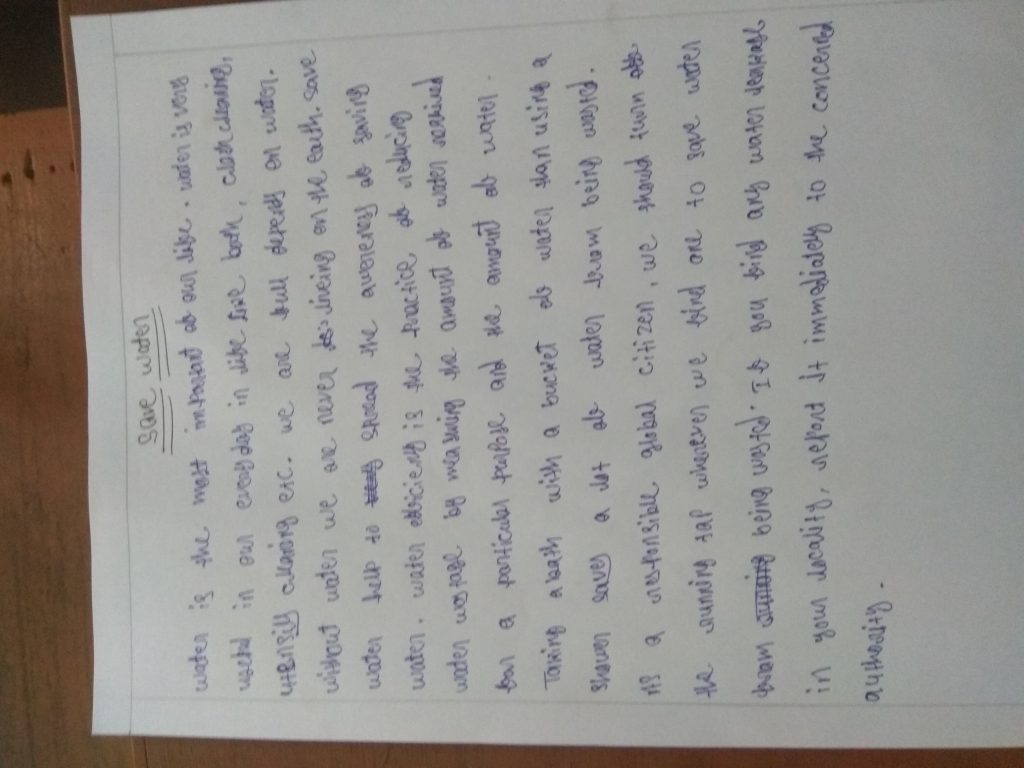 save water
water is the most important of our life. water is very
useful in our everyday in life like bath, cloth cleaning,
utensils cleaning etc. we are full depends on water.
without water we are never lincing on the earth. save
water help to spread the awareness of saving
water. water efficiency is the practice of reducing
water wastage by measuring the amount of water required
for a particular purpose and the amount of water.
Taking a bath with a bucket of water than using a
shower saves a lot of water from being wasted.
As a responsible global citizen, we should turn off
the running tap wherever we find one to save water
from being wasted. If you find any water leakage
in your locality, report it immediately to the concerned
authority.